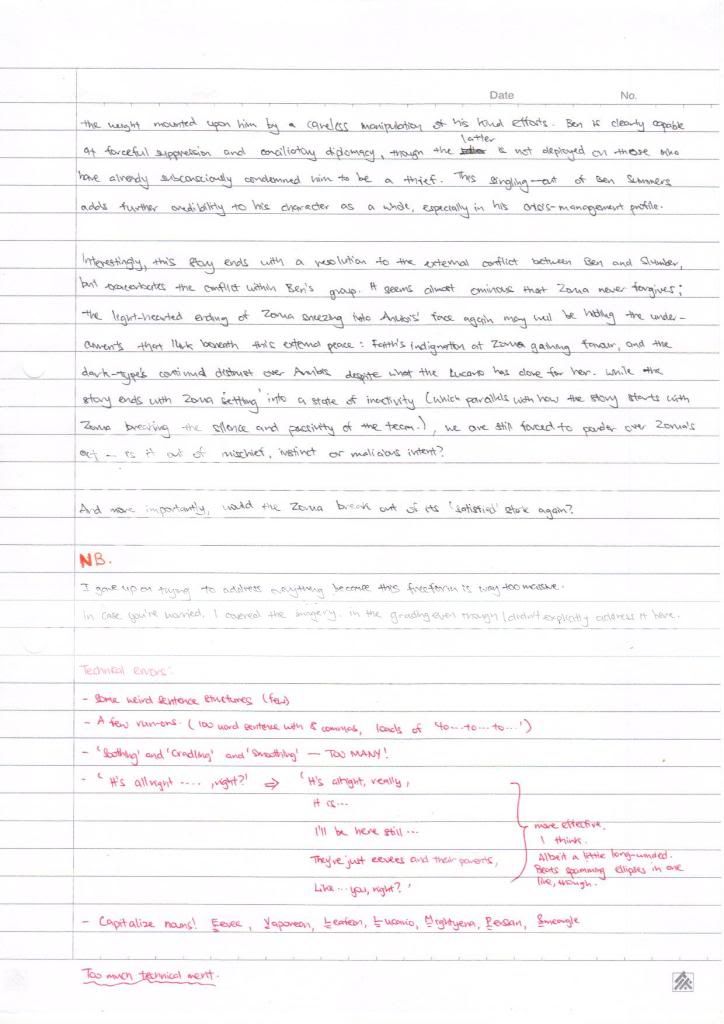 Date No.
the weight mounted upon him by a careless manipulation of his hard efforts. Ben is clearly capable
of forceful suppression and conciliatory diplomacy, though the latter is not deployed on those who
have already subconsciously condemned him to be a thief. This singling-out of Ben Summers
adds further credibility to his character as a whole, especially in his crisis-management profile.
Interestingly, this story ends with a resolution to the external conflict between Ben and Slumber,
but exacerbates the conflict within Ben's group. It seems almost ominous that Zorua never forgives;
the light-hearted ending of Zorua sneezing into Anubis' face again may well be hiding the under-
currents that lurk beneath this external peace: Faith's indignation at Zorua gaining favour, and the
dark-type's continued distrust over Anubis despite what the Lucario has done for her. While the
story ends with Zorua 'settling' into a state of inactivity (which parallels with how the story starts with
Zorua breaking the silence and passivity of the team.), we are still forced to ponder over Zorua's
act - is it out of mischief, instinct or malicious intent?
And more importantly, would the Zorua break out of its 'satisfied' state again?
NB.
I gave up on trying to address everything because this freeform is way too massive.
In case you're worried, I covered the imagery in the grading even though I didn't explicitly address it here.
Technical errors:
- Some weird sentence structures (few)
- A few run-ons. (100 word sentence with 8 commas, loads of 'to...to...to...')
- 'Soothing' and 'Cradling' and 'Smoothing' — TOO MANY!
- 'It's allright ....., right?' ⇒ 'It's alright, really,
It is...
I'll be here still...
They're just eevees and their parents,
Like...you, right?'
more effective.
I think.
Albeit a little long-winded.
Beats spamming ellipses in one
line, though.
- Capitalize nouns! Eevee, Vaporeon, Leafeon, Lucario, Mightyena, Persian, Smeargle
Too much technical merit.